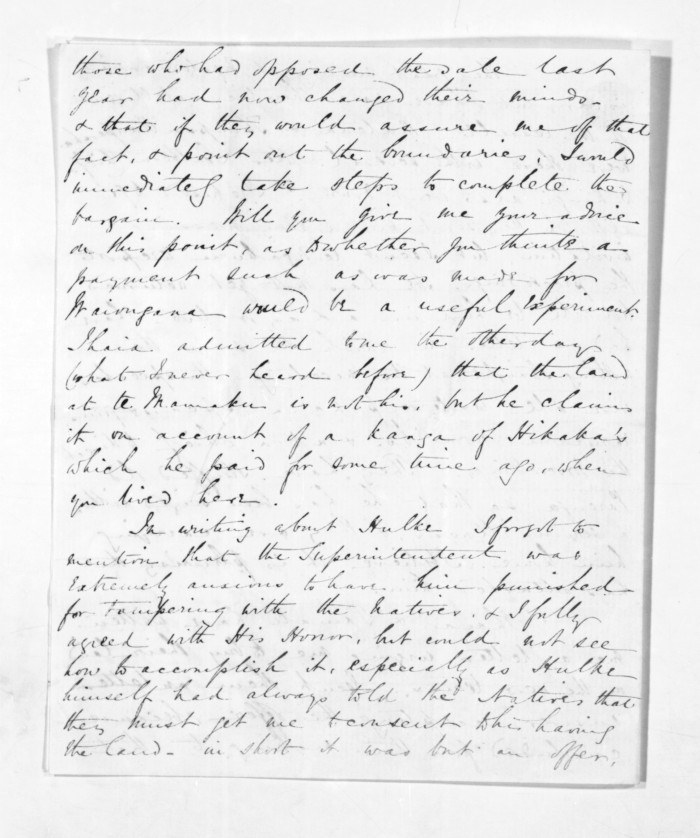 those who had opposed the sale last
year had now changed their minds -
& that if they would assure me of that
fact, & point out the boundaries, I would
immediately take steps to complete the
bargain. Will you give me your advice
on this point, as to whether you think a
payment such as was made for
Waiongana would be a useful experiment.
Ihaia admitted to me the other day
(what I never heard before) that the land
at te Mamaku is not his, but he claims
it on account of a Kanga of Hikaka's
which he paid for some time ago, when
you lived here.
In writing about Hulke I forgot to
mention that the Superintendent was
extremely anxious to have him punished
for tampering with the Natives, & I fully
agreed with His Honor, but could not see
how to accomplish it, especially as Hulke
himself had always told the Natives that
they must get me to consent to his having
the land - in short it was but an offer,